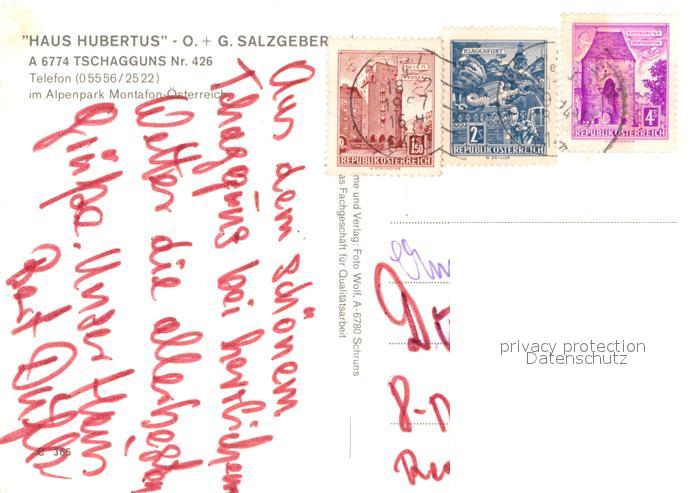 "HAUS HUBERTUS" - O. + G. SALZGEBER
A 6774 TSCHAGGUNS Nr. 426
Telefon (05556/2522)
im Alpenpark Montafon-Österreich
Aus dem schönen
Tschagguns bei herrlichem
Wetter die allerbesten
Grüße.
WIEN
1.50
REPUBLIK ÖSTERREICH
KLAGENFURT
2S
REPUBLIK ÖSTERREICH
HAINBURG
4S
REPUBLIK ÖSTERREICH
me und Verlag: Foto Wolf, A-6780 Schruns
as Fachgeschäft für Qualitätsarbeit
8-
privacy protection
Datenschutz
C 365